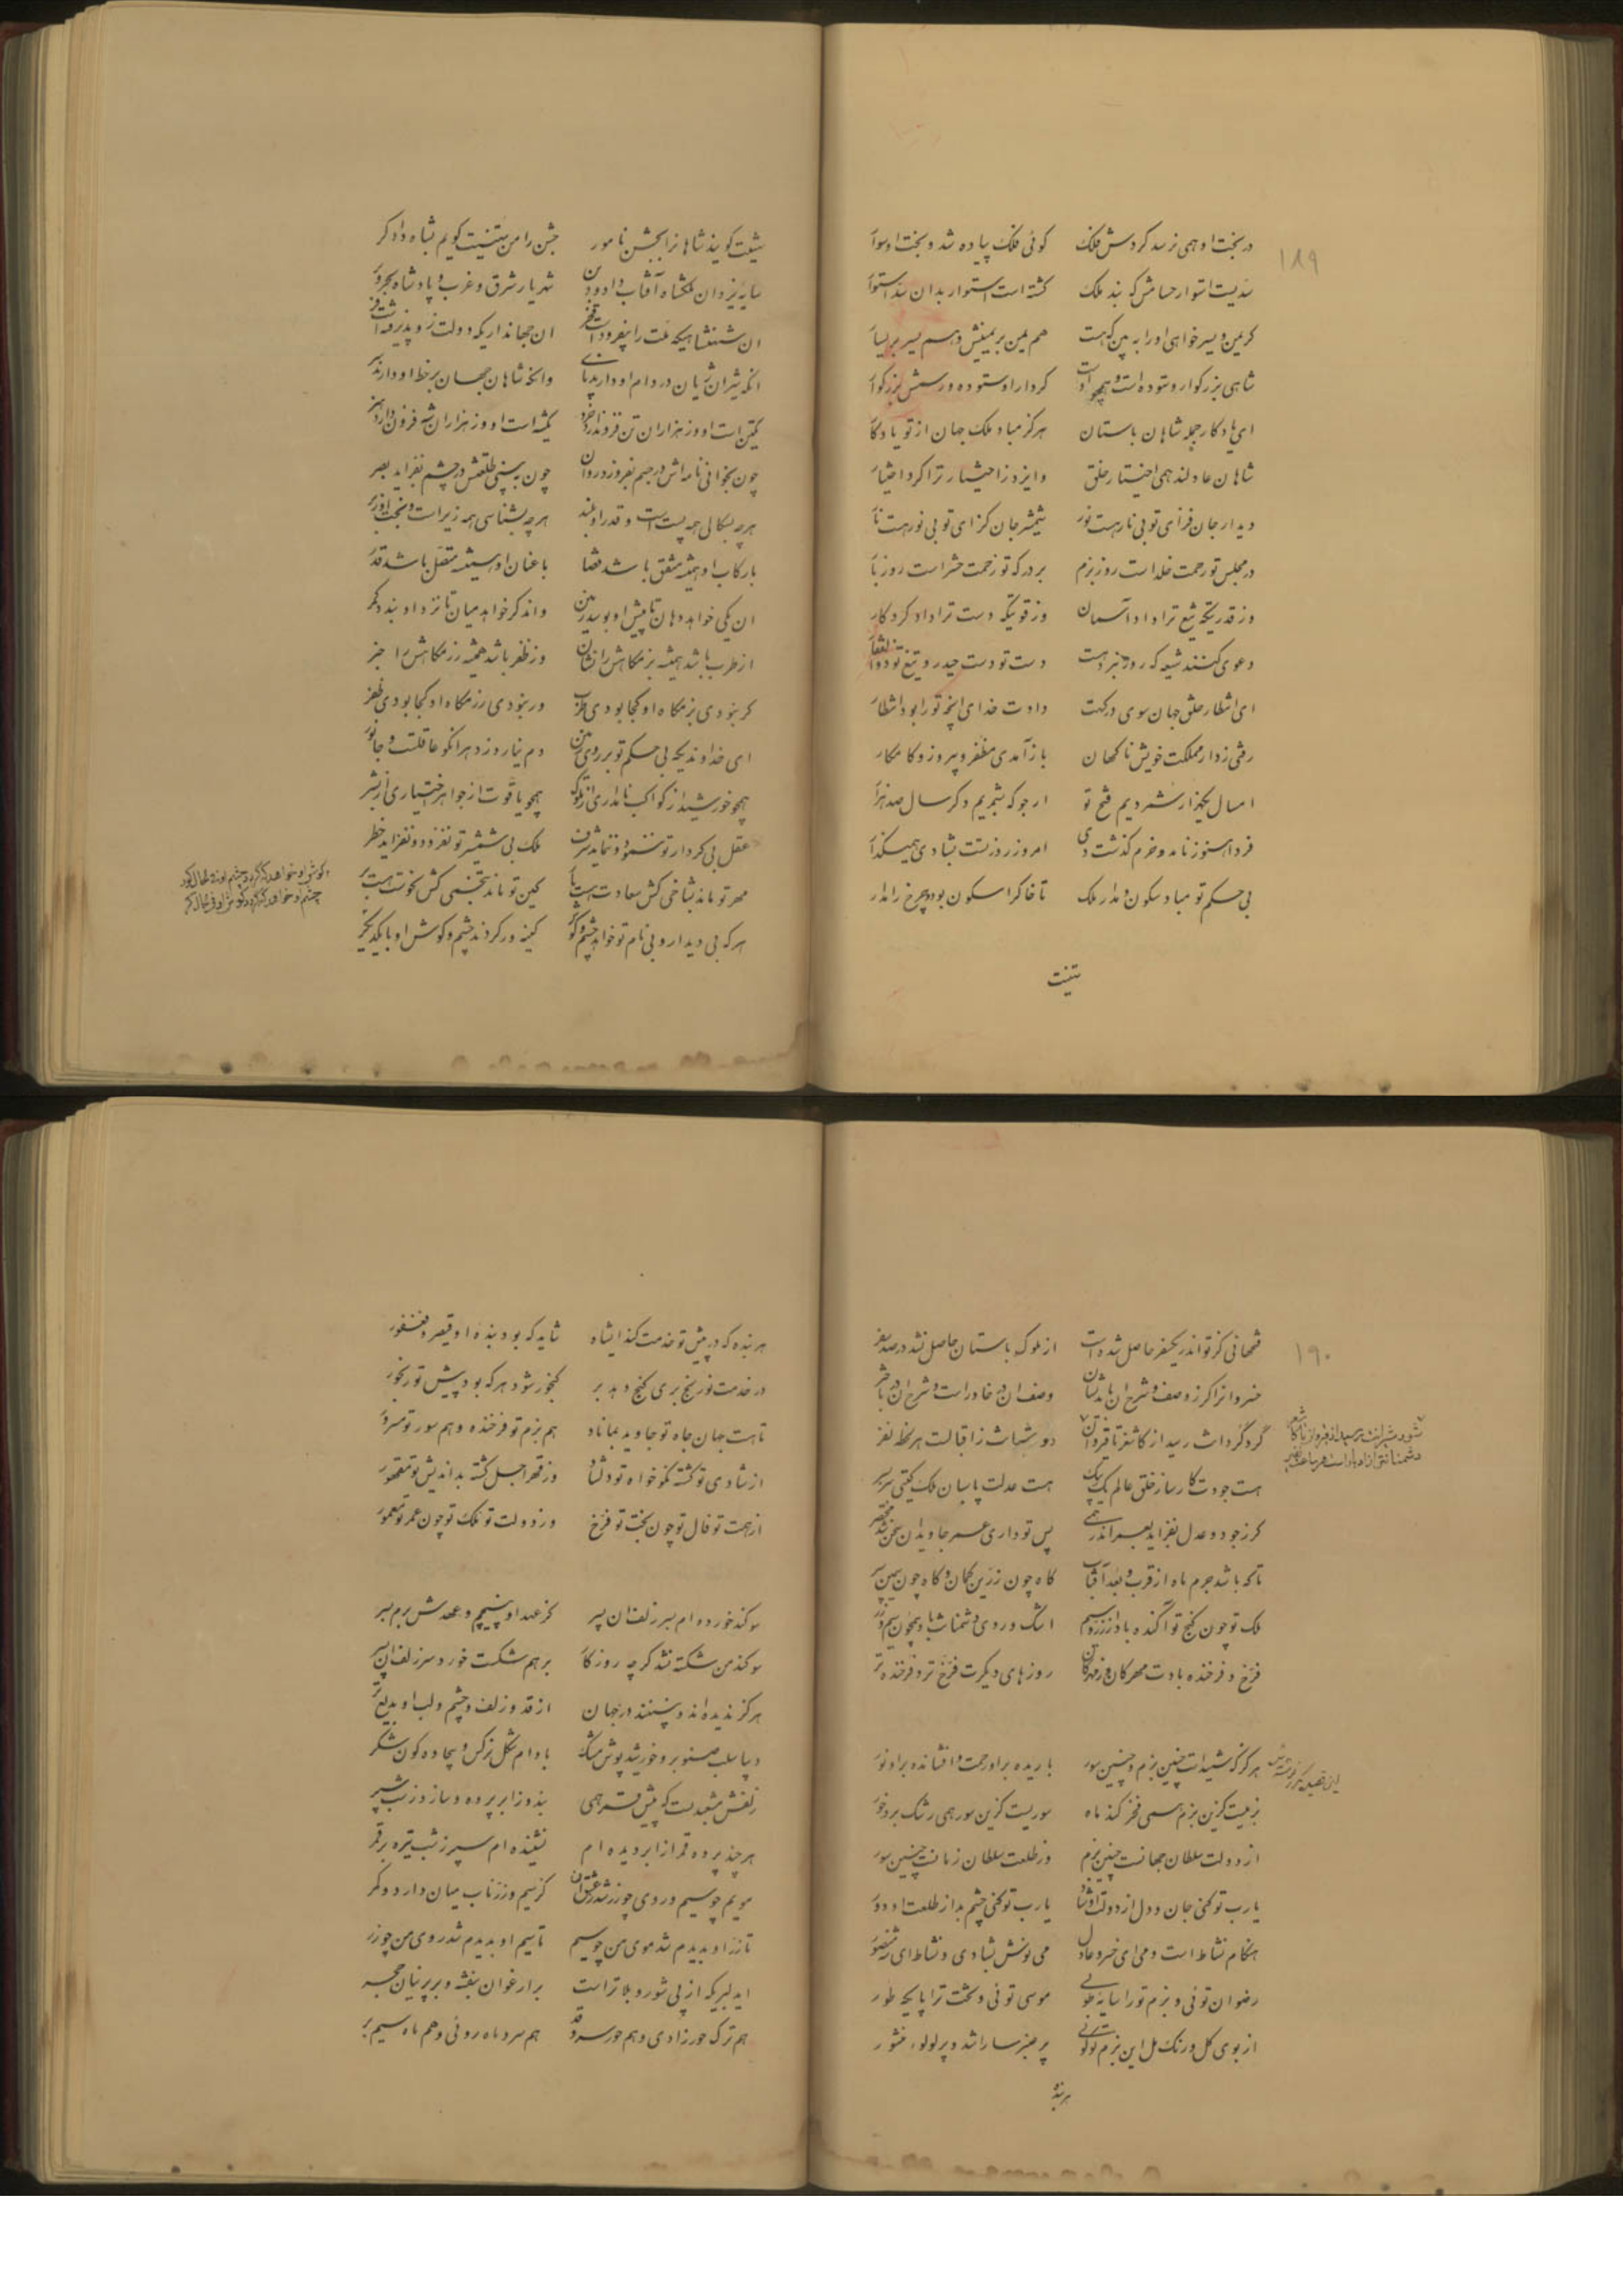 ۱۸۹
در بخت او همی نرسد گردش فلک    گوئی فلک پیاده شد و بخت او سوار
سدیست استوار حسامش که بند ملک    گشته است استوار بدان سد استوار
گر یمن و یسر خواهی او را به بین که هست    هم یمن بر یمینش و هم یسر بر یسار
شاهی بزرگوار و ستوده است و همچو اوست    کردار او ستوده و رسمش بزرگوار
ای یادگار جمله شاهان باستان    هرگز مباد ملک جهان از تو یادگار
شاهان عادلند همی اختیار خلق    و ایزد ز اختیار ترا کرد اختیار
دیدار جان فزای تو بی نار هست نور    شمشیر جان گزای تو بی نور هست نار
در مجلس تو رحمت خلد است روز بزم    بر درگه تو زحمت حشر است روز بار
وز قدر یکه تیغ ترا داد آسمان    وز قوتیکه دست ترا داد کردگار
دعوی کنند شیعه که روز نبرد هست    دست تو دست حیدر و تیغ تو ذوالفقار
ای انتظار خلق جهان سوی درگهت    دادت خدای آنچه تو را بود انتظار
رفتی ز دار مملکت خویش ناگهان    باز آمدی مظفر و پیروز و کامکار
امسال یکهزار شمردیم فتح تو    ارجو که بشمریم دگر سال صد هزار
فردا هنوز نامد و خرم گذشت دی    امروز روز تست بشادی همیگذار
بی حکم تو مباد سکون و مدار ملک    تا خاک را سکون بود و چرخ را مدار
تهنیت
تهنیت گویند شاهان را بجشن نامور    جشن را من تهنیت گویم بشاه دادگر
سایه یزدان ملکشاه آفتاب داد و دین    شهریار شرق و غرب و پادشاه بحر و بر
آن شهنشاهیکه ملت را بیفزوده است فخر    آن جهانداریکه دولت زو پذیرفته است فر
آنکه شیران ژیان در دام او دارند پای    وانکه شاهان جهان بر خط او دارند سر
یکتن است او وز هزاران تن فزون دارد خرد    یکشه است او وز هزاران شه فزون دارد هنر
چون بخوانی نامه اش در جسم بفروزد روان    چون به بینی طلعتش در چشم بفزاید بصر
هر چه بسگالی همه پست است و قدر او بلند    هر چه بشناسی همه زیر است و بخت او زبر
با رکاب او همیشه متفق باشد قضا    با عنان او همیشه متصل باشد قدر
آن یکی خواهد دهان تا پیش او بوسد زمین    واندگر خواهد میان تا نزد او بندد کمر
از طرب باشد همیشه بزمگاهش را نشان    وز ظفر باشد همیشه رزمگاهش را خبر
گر نبودی بزمگاه او کجا بودی طرب    ور نبودی رزمگاه او کجا بودی ظفر
ای خداوندیکه بی حکم تو بر روی زمین    دم نیارد زد هر آنکو عاقلست و جانور
همچو خورشید از کواکب نامداری از ملوک    همچو یاقوت از جواهر اختیاری از بشر
عقل بی کردار تو ننمود و ننماید شرف    ملک بی شمشیر تو نفزود و نفزاید خطر
مهر تو ماند بشاخی کش سعادت هست بار    کین تو ماند بتخمی کش نحوست هست بر
هر که بی دیدار و بی نام تو خواهد چشم و گوش    کینه ور گردند چشم و گوش او با یکدگر
گوش او خواهد که گردد چشم او در حال کور
چشم او خواهد که گردد گوش او در حال کر
۱۹۰
فتحهائی کز تو اندر یکسفر حاصل شده است    از ملوک باستان حاصل نشد در صد سفر
خسروان را گر ز وصف و شرح آن باید نشان    وصف آن در خاور است و شرح آن در باختر
گرد گردانت رسید از کاشغر تا قیروان    دوستانت را ز اقبالت هر لحظه نفر
هست جودت کارساز خلق عالم یک بیک    هست عدلت پاسبان ملک گیتی سر بسر
گر ز جود و عدل بفزاید بعمر اندر همی    پس تو داری عمر جاویدان سخن شد مختصر
تا که باشد جرم ماه از قرب و بعد آفتاب    گاه چون زرین کمان و گاه چون سیمین سپر
ملک تو چون گنج تو آگنده باد از زر و سیم    اشک و روی دشمنانت باد همچون سیم و زر
فرخ و فرخنده بادت مهرگان و مهرگان    روزهای دیگرت فرخ تر و فرخنده تر
هرگز که شنیدست چنین بزم و چنین سور    باریده بر او رحمت و افشانده بر او نور
بزمیست کزین بزم همی فخر کند ماه    سوریست کزین سور همی رشک برد حور
از دولت سلطان جهانست چنین بزم    وز طلعت سلطان زمانست چنین سور
یارب تو کنی جان و دل از دولت او شاد    یارب تو کنی چشم بد از طلعت او دور
هنگام نشاط است و می ای خسرو عادل    می نوش بشادی و نشاط ای شه منصور
رضوان توئی و بزم تو را سایه طوبی    موسی توئی و تخت ترا پایگه طور
از بوی گل و رنگ مل این بزم تو گوئی    پر عنبر سارا شد و پر لولوء منثور
هر بنده
هر بنده که در پیش تو خدمت کند ایشاه    شاید که بود بنده او قیصر و فغفور
در خدمت تو رنج بری گنج دهد بر    گنجور شود هر که بود پیش تو رنجور
تا هست جهان جاه تو جاوید بماناد    هم بزم تو فرخنده و هم سور تو مسرور
از شادی تو گشته نکو خواه تو دلشاد    وز قهر اجل گشته بداندیش تو مقهور
از همت تو فال تو چون بخت تو فرخ    وز دولت تو ملک تو چون عمر تو معمور
سوگند خورده ام بسر زلف آن پسر    کز عهد او نپیچم و عهدش برم بسر
سوگند من شکسته نشد گر چه روزگار    بر هم شکست خورد سر زلف آن پسر
هرگز ندیده اند و نبینند در جهان    از قد و زلف و چشم و لب او بدیع تر
دیبا سلب صنوبر و خورشید پوش مشک    بادام شکل نرگس و بیجاده گون شکر
زلفش مشعبدست که پیش قمر همی    بندد ز ابر پرده و سازد ز شب سپر
هر چند پرده قمر از ابر دیده ام    نشنیده ام سپر ز شب تیره بر قمر
مویم چو سیم و روی چو زر شد ز عشق آن    کز سیم و زر ناب میان دارد و کمر
تا زر او بدیدم شد موی من چو سیم    تا سیم او بدیدم شد روی من چو زر
ای دلبریکه از پی شور و بلا تر است    بر ارغوان بنفشه و بر پرنیان حجر
هم ترک حور زادی و هم حور سرو قد    هم سرو ماه روئی و هم ماه سیم بر